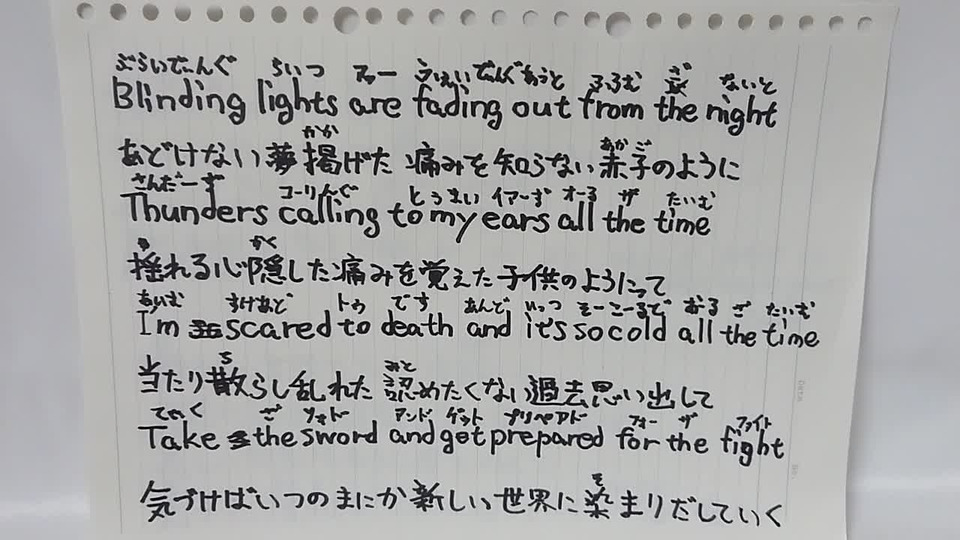 ぶらいでぃんぐ らいつ アー うぇいでぃんぐあうと ふろむ ざ ないと
Blinding lights are fading out from the night
かか あかご
あどけない夢掲げた 痛みを知らない赤子のように
さんだーず コーリんぐ とぅまい イアーず オーる ザ たいむ
Thunders calling to my ears all the time
ゆ かく
揺れる心隠した痛みを覚えた子供のようにって
あいむ すけあど トゥ です あんど いっつ そーこーるど おーる ざ たいむ
I'm scared to death and it's so cold all the time
ち みと
当たり散らし乱れた 認めたくない過去思い出して
ていく ざ ソォド アンド ゲット プリペアド フォー ザ ファイト
Take the sword and get prepared for the fight
そ
気づけばいつのまにか新しい世界に染まりだしていく